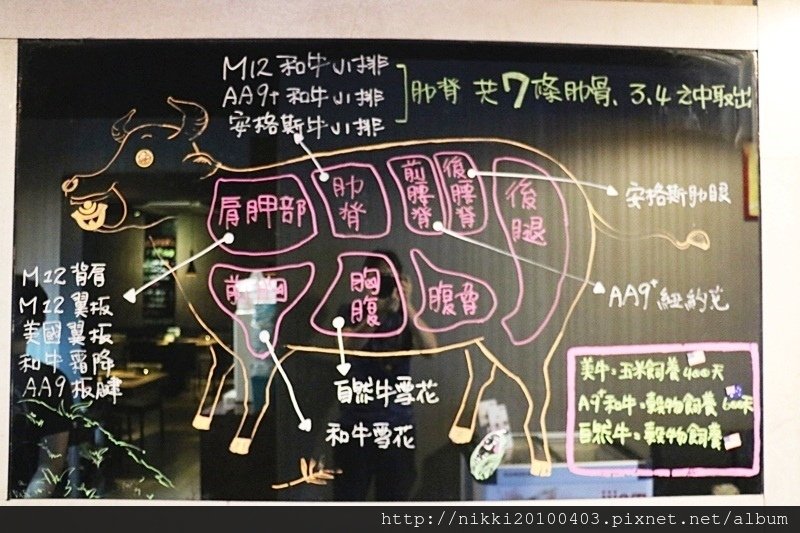 M12 和牛小排
AA9+ 和牛小排
安格斯牛小排
肋脊 共7條肋骨、3.4之中取出
肩胛部
肋脊
前腰脊
後腰脊
後腿
安格斯肋眼
AA9+紐約克
M12 背肩
M12 翼板
美國翼板
和牛霜降
AA9 板腱
前胸
胸腹
腹脅
自然牛雪花
和牛雪花
美牛=玉米飼養400天
A9+和牛=穀物飼養600天
自然牛=穀物飼養
http://nikki20100403.pixnet.net/album